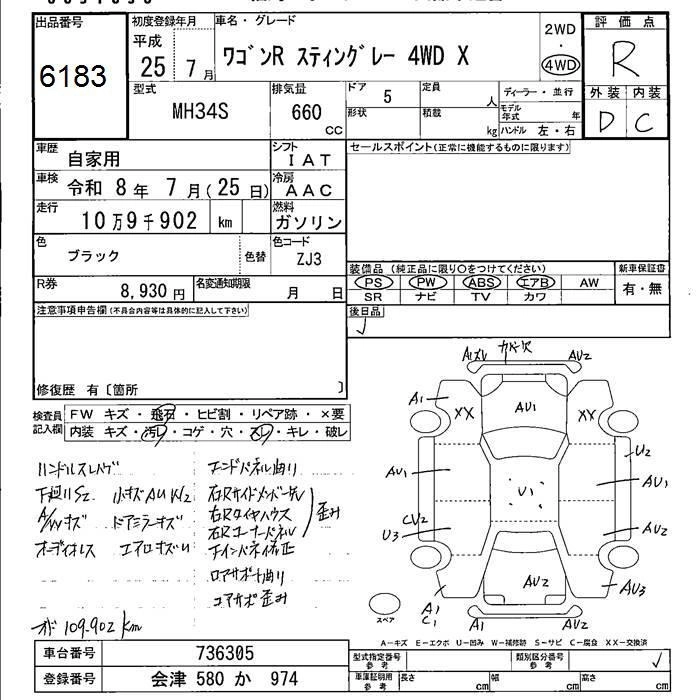 出品番号
6183
初度登録年月
平成
25 7月
車名・グレード
ワゴンR スティングレー 4WD X
2WD
・
4WD
評価点
R
外装 内装
D C
型式
MH34S
排気量
660
CC
ドア
5
定員
人
形状
積載
kg
ディーラー・並行
モデル年式
年
ハンドル 左・右
車歴
自家用
シフト
IAT
セールスポイント(正常に機能するものに限ります)
車検
令和 8年 7月(25日)
冷房
AAC
走行
10万9千902 km
燃料
ガソリン
色
ブラック
色替
色コード
ZJ3
装備品 (純正品に限り○をつけてください)
新車保証書
PS PW ABS エアB AW
有・無
SR ナビ TV カワ
R券
8,930円
名変通知期限
月 日
後日品
注意事項申告欄(不具合内容等は具体的に記入して下さい)
修復歴 有〔箇所 〕
検査員記入欄
FW キズ・飛石・ヒビ割・リペア跡・×要
内装 キズ・汚レ・コゲ・穴・スレ・キレ・破レ
下廻りS2 小キズAUキズ
A/Wキズ ドアミラーキズ
オーディオレス エアロキズU
エンドパネル曲り
右Rサイドメンバーサビ
右Rタイヤハウス
右Rコーナーパネル
歪み
ロアサポート曲り
コアサポ歪み
オド109.902km
A1ズレ カバー欠 AU2
A1
XX
AU1
XX
U2
AU1
U1
AU1
CU2
U3
AU2
AU2
AU3
A1
C1
A1
AU2
スペア
A-キズ E-エクボ U-凹み W-補修跡 S-サビ C-腐食 XX-交換済
車台番号
736305
登録番号
会津 580 か 974
型式指定番号
参考
類別区分番号
参考
車庫証明用
参考
長さ
cm
幅
cm
高さ
cm